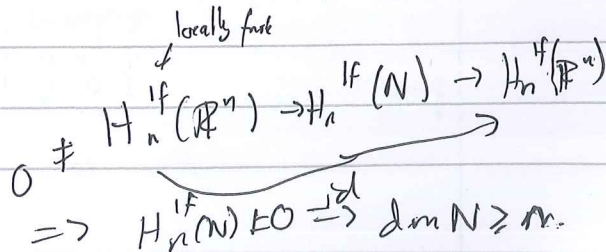 locally finite
0 ≠ H_n^{lf}(ℝ^n) → H_n^{lf}(N) → H_n^{lf}(ℝ^n)
id
⇒ H_n^{lf}(N) ≠ 0 ⇒ dim N ≥ n.